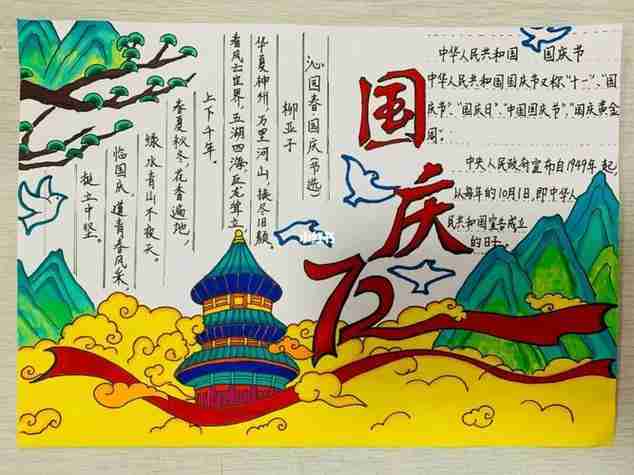 中华人民共和国 国庆节
中华人民共和国国庆节又称"十一"、"国
庆节"、"国庆日"、"中国国庆节"、"国庆黄金
周"。
中央人民政府宣布自1949年起,
以每年的10月1日,即中华人
民共和国宣告成立
的日子。
国庆
72
沁园春·国庆(节选)
柳亚子
华夏神州,万里河山,换尽旧颜。
看风云世界,五湖四海,巨龙耸立,
上下千年。
春夏秋冬,花香遍地,
绿水青山不夜天。
临国庆,道青春风采,
挺立中坚。
小红书